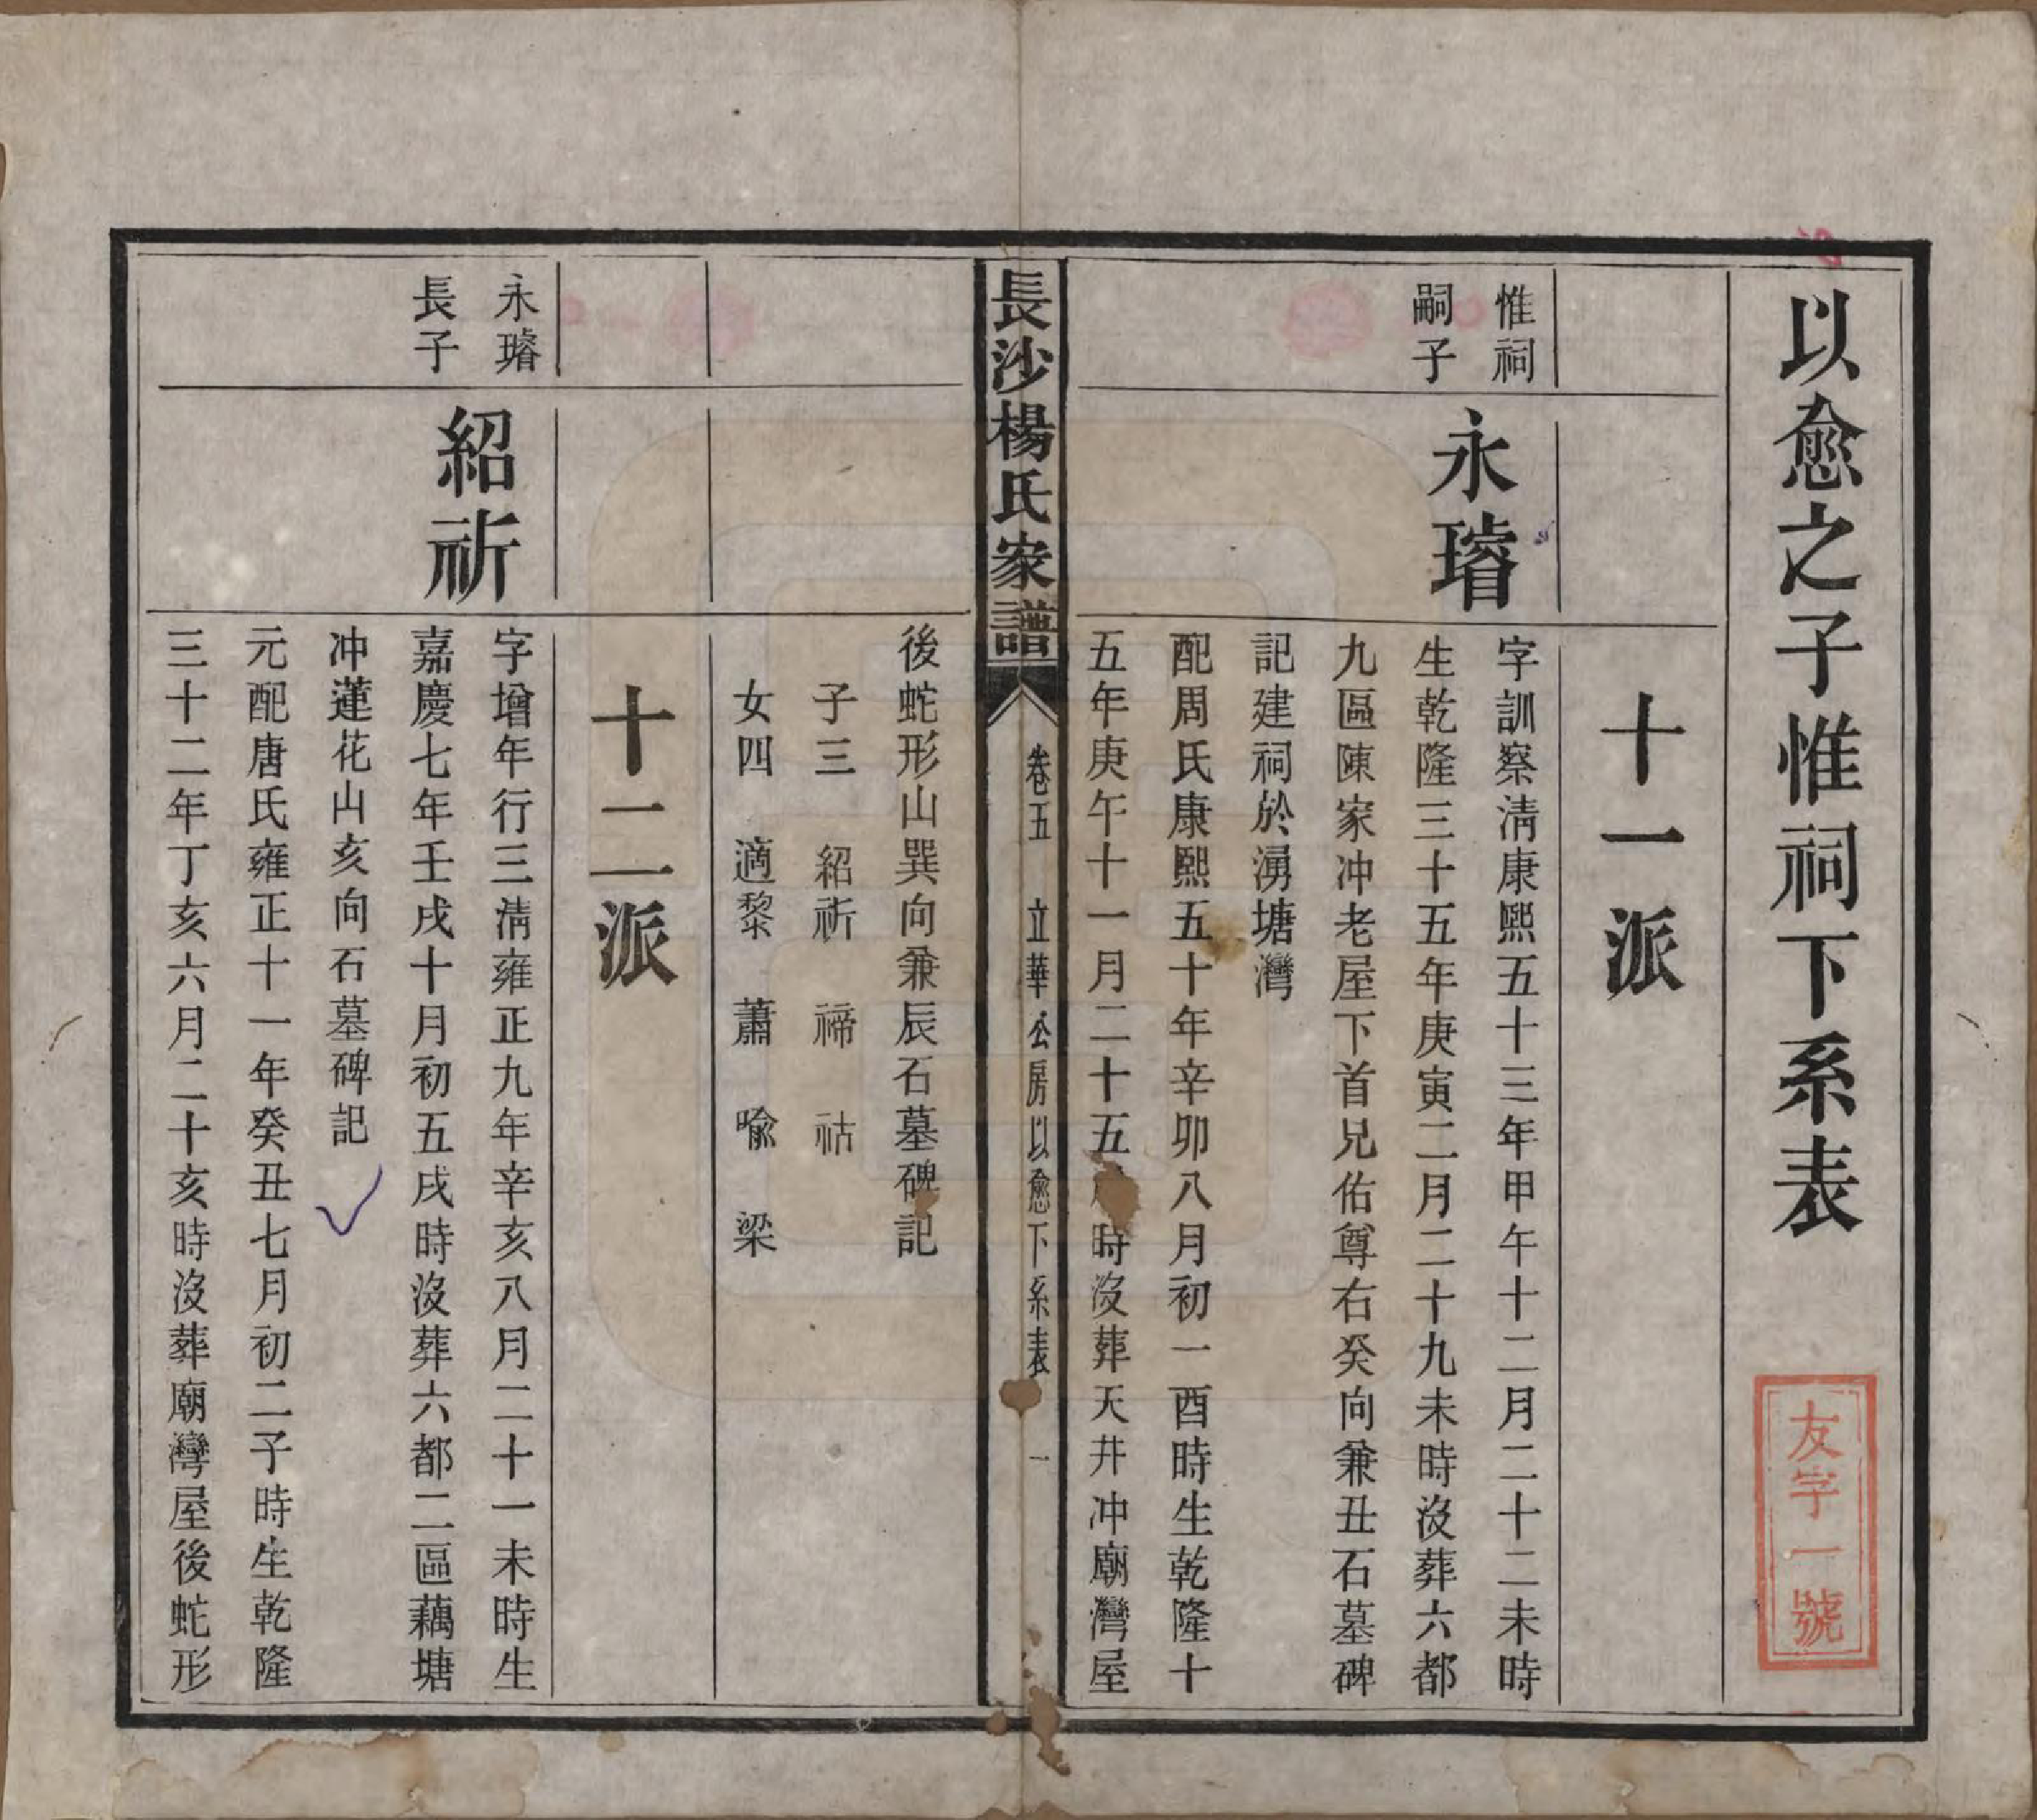 以愈之子惟祠下系表
友字一號
十一派
惟祠
嗣子
永璿
字訓察淸康熙五十三年甲午十二月二十二未時
生乾隆三十五年庚寅二月二十九未時沒葬六都
九區陳家冲老屋下首兄佑尊右癸向兼丑石墓碑
記建祠於湧塘灣
配周氏康熙五十年辛卯八月初一酉時生乾隆十
五年庚午十一月二十五時沒葬天井冲廟灣屋
長沙楊氏家譜
卷五 立華公房以愈下系表 一
後蛇形山巽向兼辰石墓碑記
子三 紹祈 禘 祜
女四 適黎 蕭 喻 梁
十二派
永璿
長子
紹祈
字增年行三淸雍正九年辛亥八月二十一未時生
嘉慶七年壬戌十月初五戌時沒葬六都二區藕塘
冲蓮花山亥向石墓碑記
元配唐氏雍正十一年癸丑七月初二子時生乾隆
三十二年丁亥六月二十亥時沒葬廟灣屋後蛇形